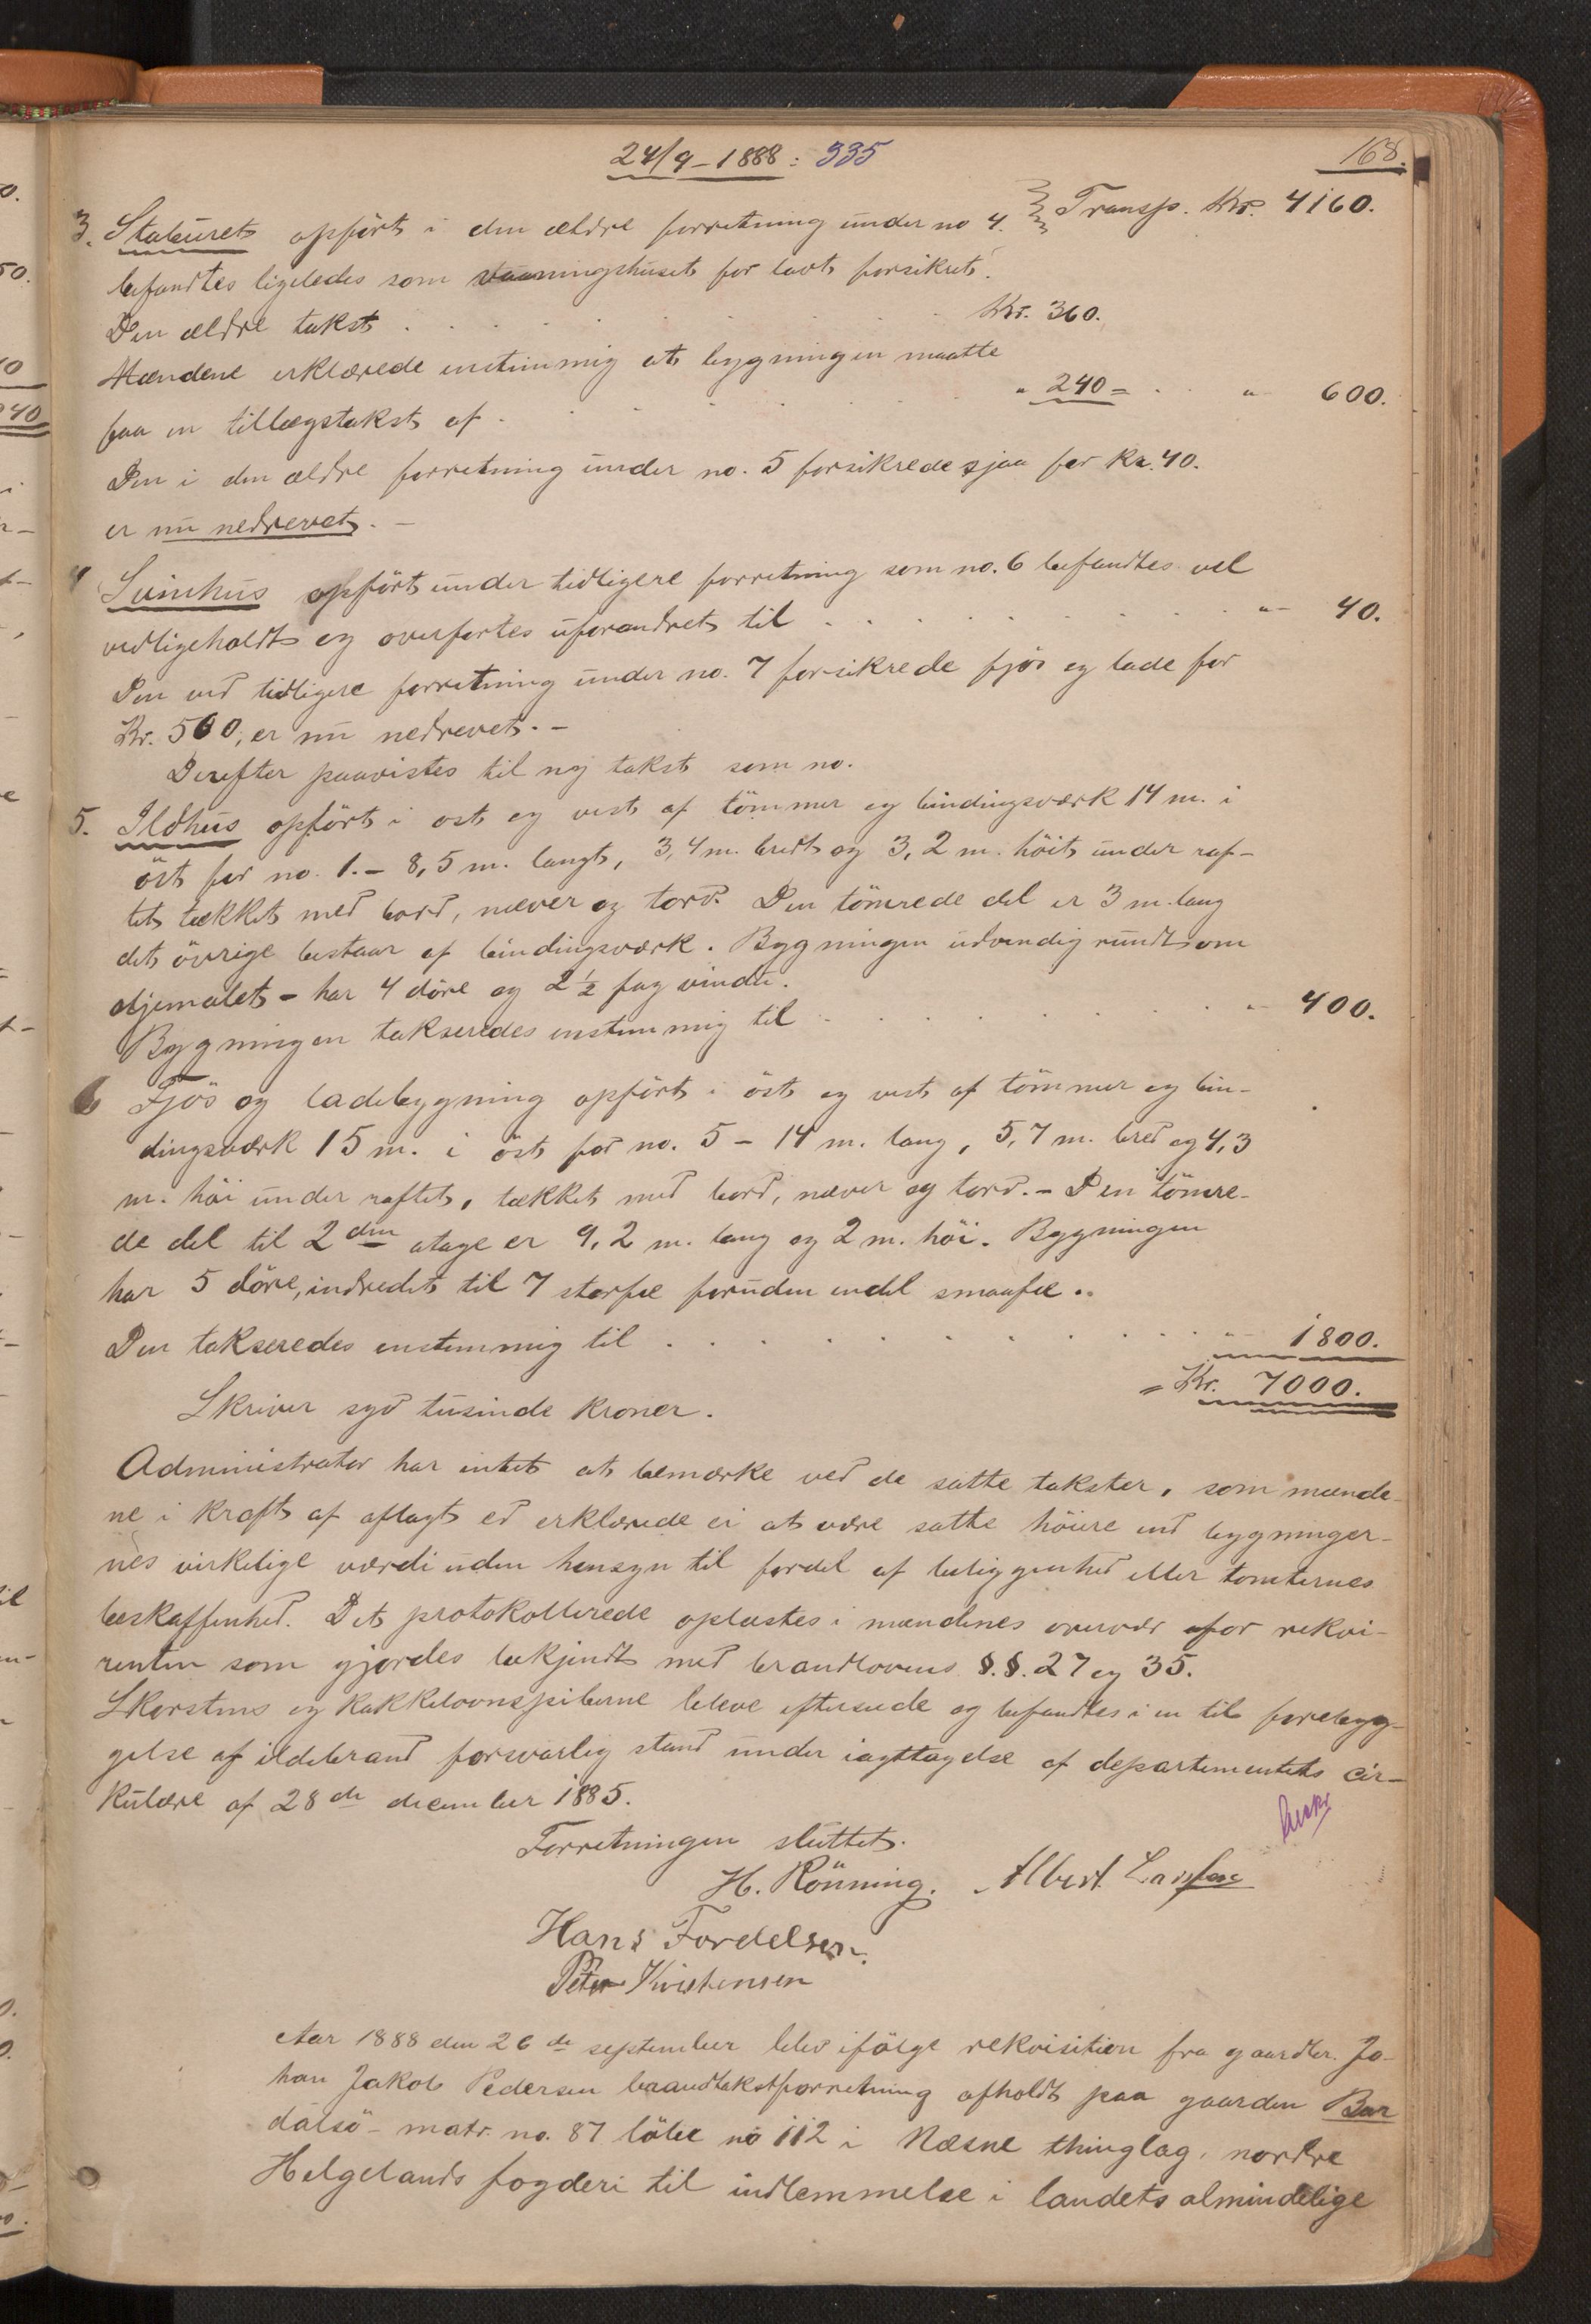 24/9 - 1888: 335
168.
3. Stabburet opført i den ældre forretning ünder no 4. Transp. Kr. 4160.
befandtes ligeledes som vaaningshuset for lavt forsikret.
Den ældre takst . . . . . Kr. 360.
Mændene erklærede enstemmig at bygningen maatte
faa en tillægstakst af . . . . " 240 = . . " 600.
Den i den ældre forretning ünder no. 5 forsikrede sjaa for Kr. 40.
er nü nedrevet. -
4 Svinhüs opført ünder tidligere forretning som no. 6 befandtes vel
vedligeholdt og overførtes üforandret til . . . . . " 40.
Den ved tidligere forretning ünder no. 7 forsikrede fjös og lade for
Kr. 560, er nü nedrevet. -
Derefter paavistes til ny takst som no.
5. Ildhüs opført i ost og vest af tömmer og bindingsværk 14 m. i
öst for no. 1. - 8,5 m. langt, 3,4 m. bredt og 3,2 m. höit ünder raf-
tet tækket med bord, næver og torv. Den tömrede del er 3 m. lang
det övrige bestaar af bindingsværk. Bygningen üdvendig ründt om
oljemalet - har 4 döre og 2 1/2 fag vindu.
Bygningen takseredes enstemmig til . . . . . " 400.
6 Fjös og ladebygning opført i öst og vest af tömmer og bin-
dingsværk 15 m. i öst for no. 5 - 14 m. lang, 5,7 m. bred og 4,3
m. höi ünder raftet, tækket med bord, næver og torv. - Den tömre-
de del til 2den etage er 9,2 m. lang og 2 m. höi. Bygningen
har 5 döre, indredet til 7 storfæ forüden endel smaafæ..
Den takseredes enstemmig til . . . . . " 1800.
= Kr. 7000.
Skriver syv tüsinde kroner.
Administrator har intet at bemærke ved de satte takster, som mænde-
ne i kraft af aflagt ed erklærede ei at være satte höiere end bygninger-
nes virkelige værdi uden hensyn til fordel af beliggenhed eller tomternes
beskaffenhed. Det protokollerede oplæstes i mændenes overvær for rekvi-
renten som gjordes bekjendt med brandlovens §.§. 27 og 35.
Skorstens og kakkelovnspiberne bleve eftersede og befandtes i en til forebyg-
gelse af ildebrand forsvarlig stand ünder iagttagelse af departementets cir-
külære af 28de december 1885.
Forretningen slüttet.
H. Rönning. Albert Larsen
Hans Fordelsen.
Peter Kristensen
Aar 1888 den 26de september blev ifölge rekvisition fra gaardbr. Jo-
han Jakob Pedersen brandtakstforretning afholdt paa gaarden Bar
dalsö - matr. no. 87 löbe no 112 i Næsne thinglag, nordre
Helgelands fogderi til indlemmelse i landets almindelige